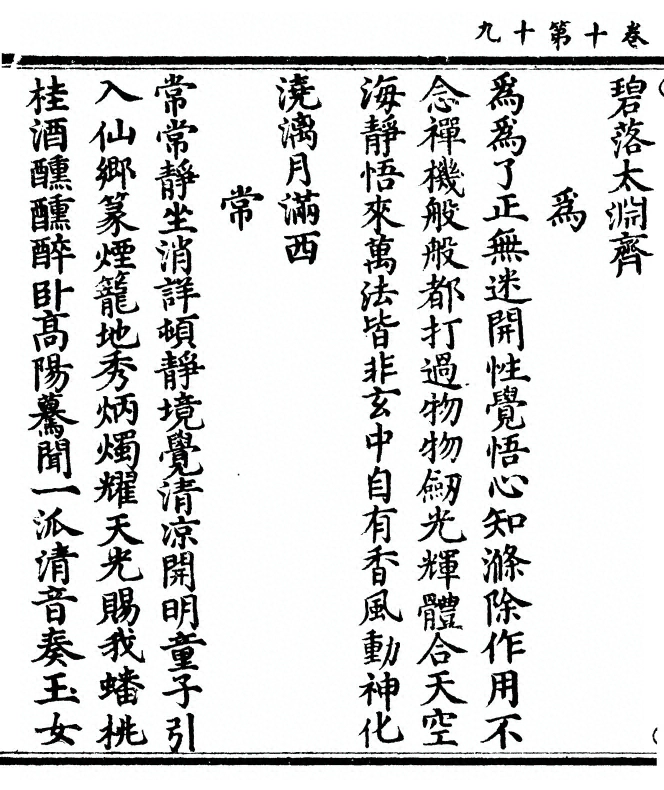 卷十第十九
碧落太淵齊
爲
爲爲了正無迷開性覺悟心知滌除作用不
念禪機般般都打過物物劒光輝體合天空
海靜悟來萬法皆非玄中自有香風動神化
澆漓月滿西
常
常常靜坐消詳頓靜境覺清凉開明童子引
入仙鄉篆煙籠地秀炳燭耀天光賜我蟠桃
桂酒醺醺醉卧高陽驀聞一派清音奏玉女